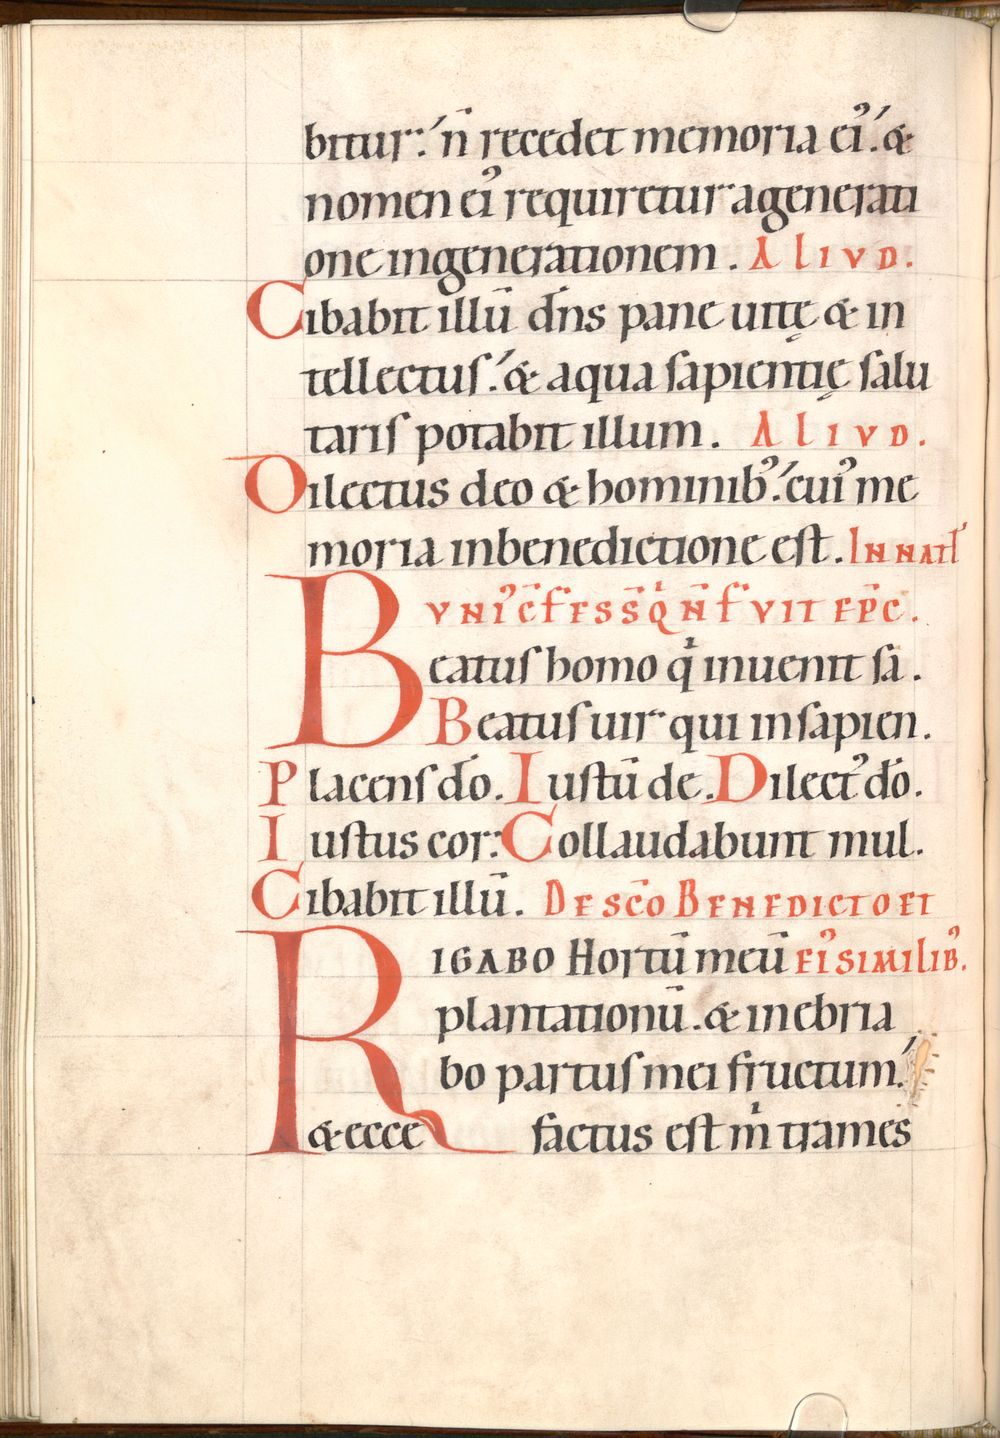 bitur. n̄ recedet memoria ei᾿. &
nomen ei᾿ requiretur a generati
one in generationem. ALIVD.
Cibabit illū dn̄s pane uitę & in
tellectuſ. & aqua ſapientię ſalu
tariſ potabit illum. ALIVD.
Dilectus deo & hominib᾿. cui᾿ me
moria in benedictione eſt. IN NATL̄
VNI᾿ C̄FESS̄ Qͥ N̄ F̄VIT EP̄C.
Beatuſ homo qͥ inuenit ſa.
Beatuſ uir qui in ſapien.
Placenſ dō. Iuſtū de. Dilect᾿ dō.
Iuſtus cor: Collaudabunt mul.
Cibabit illū. DE SC̄O BENEDICTO ET
RIGABO Hortū meū EI᾿ SIMILIB᾿.
plantationū. & inebria
bo partuſ mei fructum.
& ecce factus eſt mͥ trames